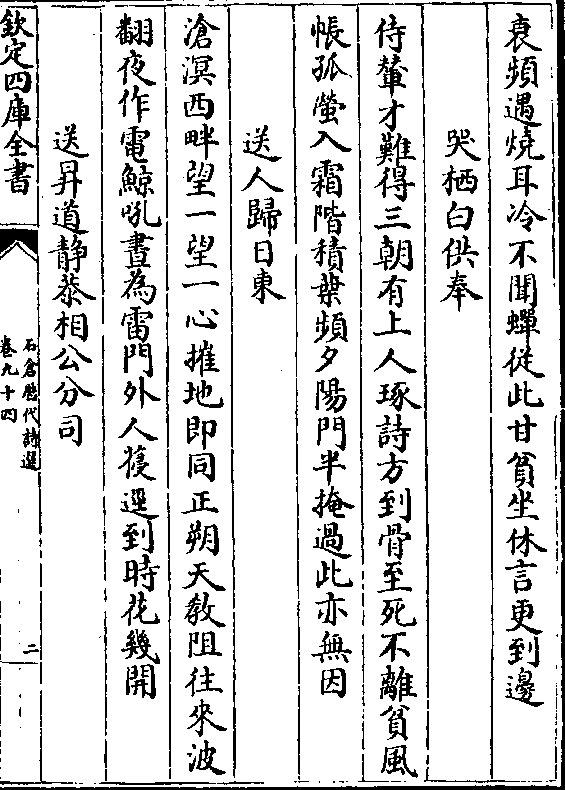 衰頻遇燒耳冷不聞蟬從此甘貧坐休言更到邊
哭栖白供奉
侍輦才難得三朝有上人琢詩方到骨至死不離貧風
帳孤螢入霜階積葉頻夕陽門半掩過此亦無因
送人歸日東
滄溟西畔望一望一心摧地即同正朔天教阻往來波
翻夜作電鯨吼晝為雷門外人𢰅逕到時花幾開
送昇道靜恭相公分司
欽定四庫全書
石倉歷代詩選
卷九十四
二